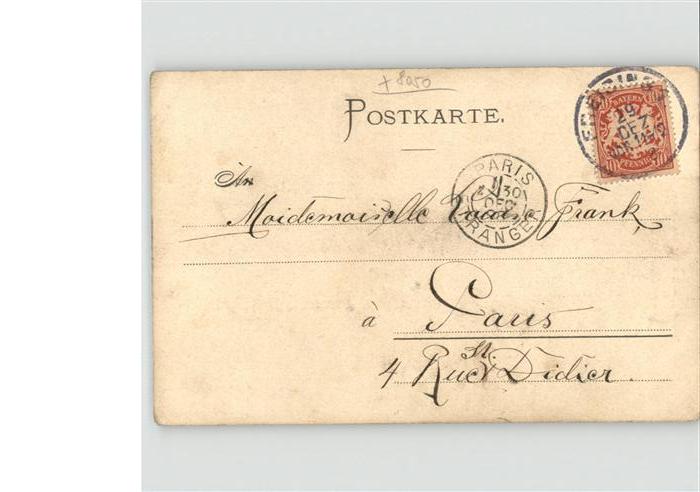 + 8050
POSTKARTE.
BAYERN
10 10
PFENNIG
29
DEZ
PARIS
30
DEC
ETRANGER
An
Moidemoiselle Frank
à Paris
4 Rue St. Didier.